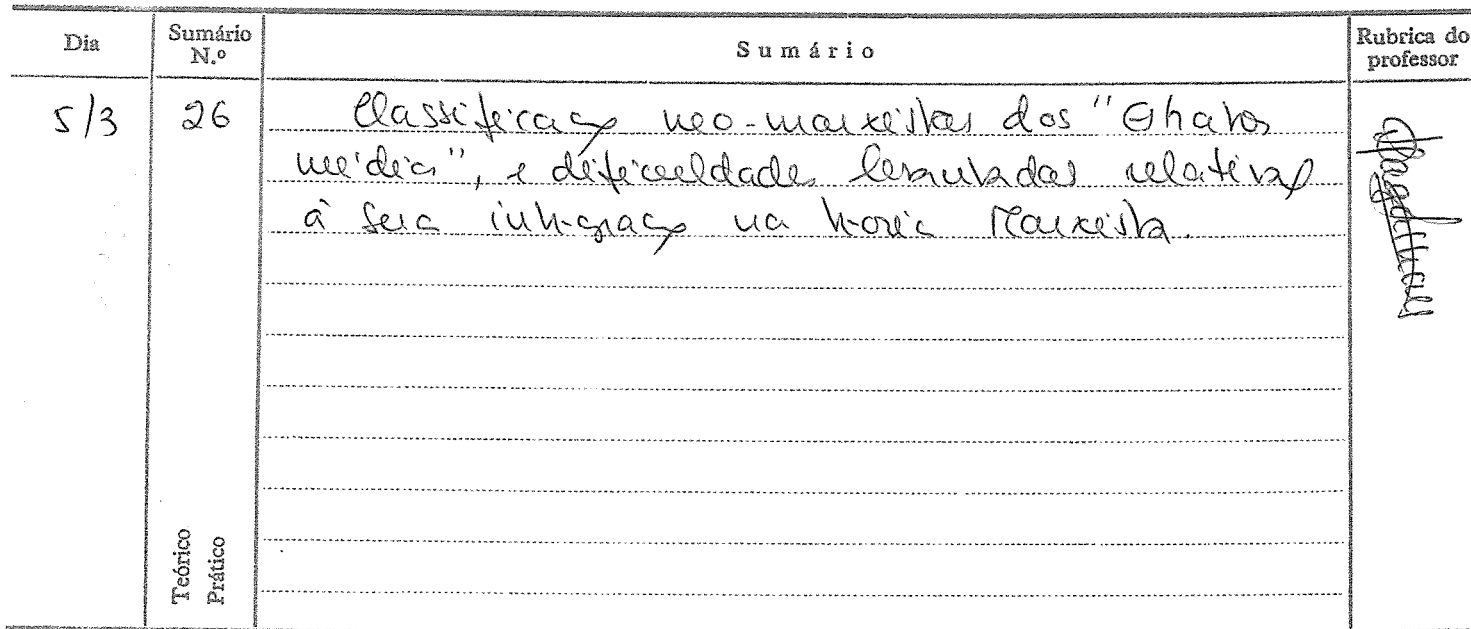 Dia
Sumário N.º
Sumário
Rubrica do professor
5/3
26
Classificação neo-marxistas dos "Estratos
médios", e dificuldades levantadas relativas
à sua integração na teoria Marxista.
Teórico
Prático